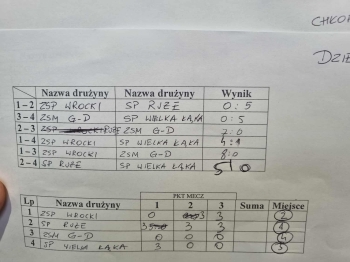 CHŁOP
DZIE
Nazwa drużyny Nazwa drużyny Wynik
1-2 ZSP WROCKI SP RUŻE 0:5
3-4 ZSM G-D SP WIELKA ŁĄKA 0:5
2-3 RUŻE ZSM G-D 7:0
1-4 ZSP WROCKI SP WIELKA ŁĄKA 4:1
1-3 ZSP WROCKI ZSM G-D 8:0
2-4 SP RUŻE SP WIELKA ŁĄKA 5:0
PKT MECZ
Lp Nazwa drużyny 1 2 3 Suma Miejsce
1 ZSP WROCKI 0 3 3 2
2 SP RUŻE 3 3 3 1
3 ZSM G-D 0 0 0 4
4 SP WIELKA ŁĄKA 3 0 0 3